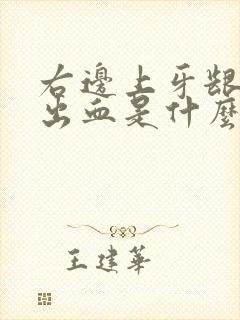 右邊上牙龈
出血是什麽
王建華